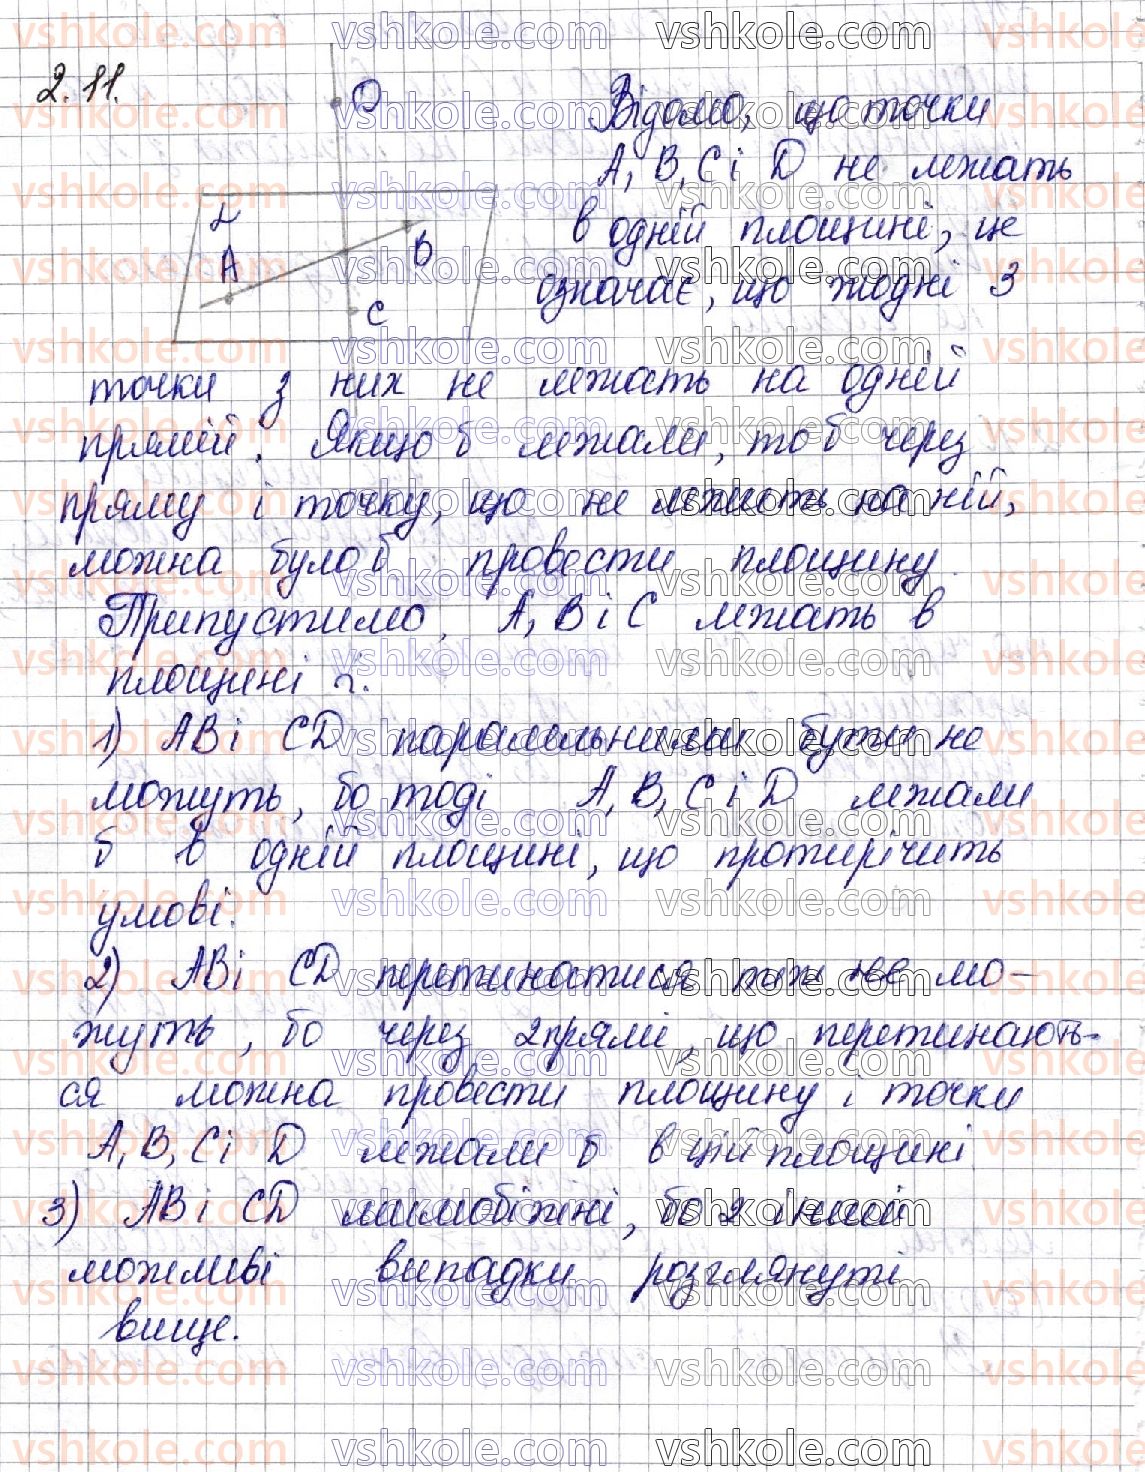 2.11.
D
Відомо, що точки
A, B, C і D не лежать
α
в одній площині, це
A
B
означає, що жодні 3
C
точки з них не лежать на одній
прямій. Якщо б лежали, то б через
пряму і точку, що не лежить на ній,
можна було б провести площину.
Припустимо, A, B і C лежать в
площині α.
1) AB і CD паралельними бути не
можуть, бо тоді A, B, C і D лежали
б в одній площині, що протирічить
умові.
2) AB і CD перетинатися теж не мо-
жуть, бо через 2 прямі, що перетинають-
ся можна провести площину і точки
A, B, C і D лежали б в цій площині
3) AB і CD мимобіжні, бо 2 інші
можливі випадки розглянуті
вище.
vshkole.com